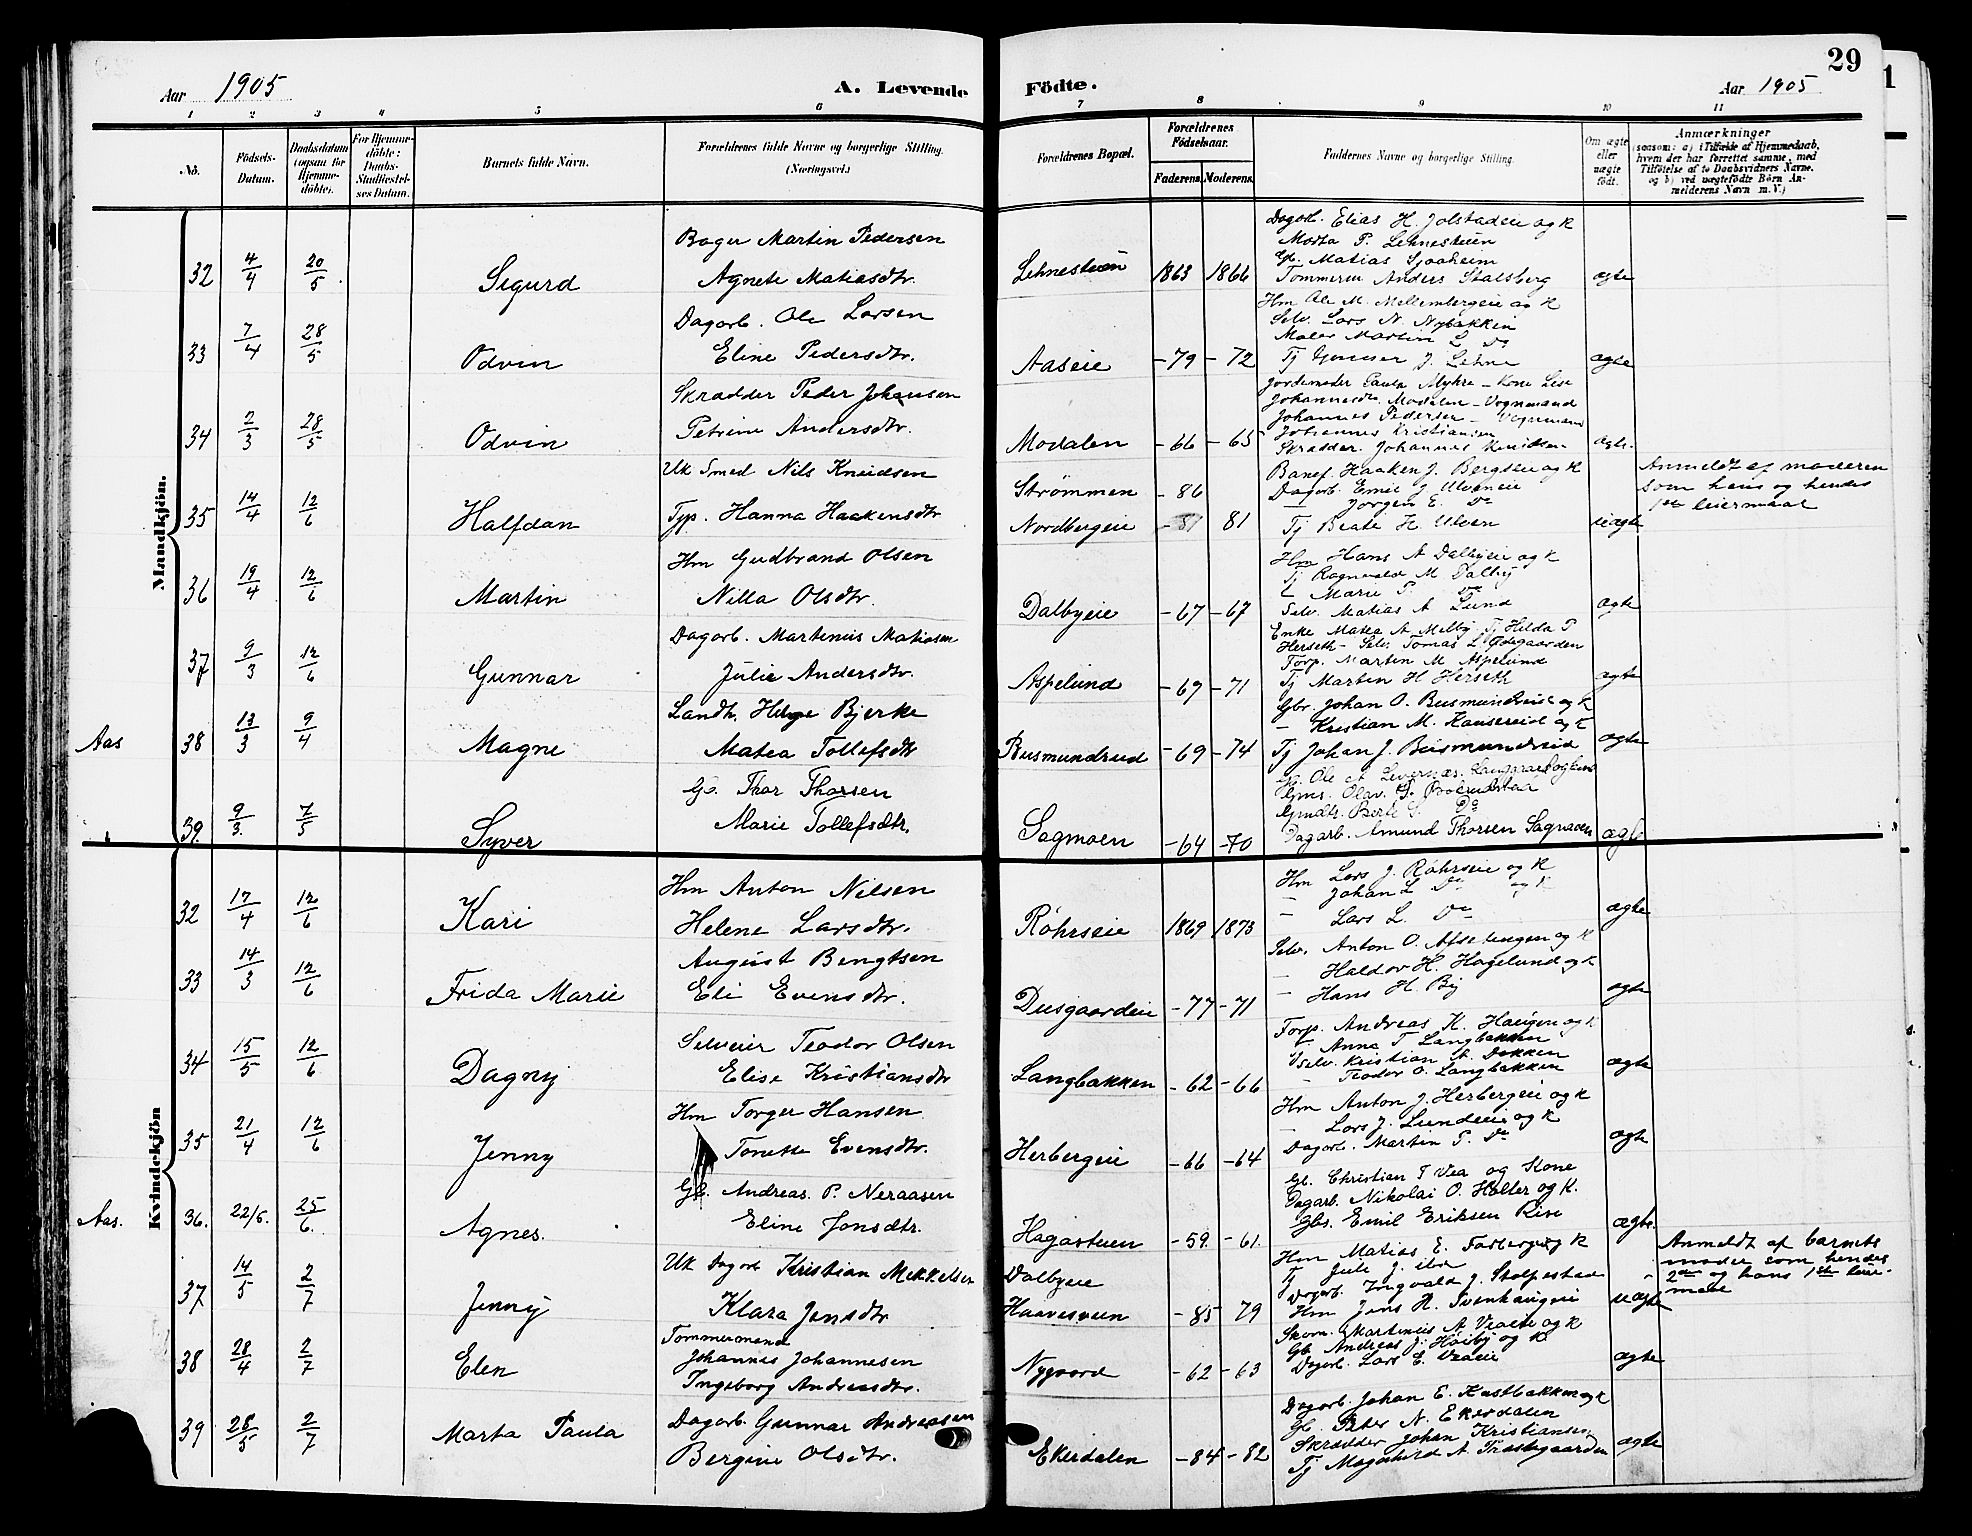 29
Aar 1905
A. Levende
Födte.
Aar 1905
1 2 3 4 5 6 7 8 9 10 11
No.
Födsels-Datum.
Daabsdatum (ogsaa for Hjemmedöbte).
For Hjemmedöbte: Daabs Stadfæstelses Datum.
Barnets fulde Navn.
Forældrenes fulde Navne og borgerlige Stilling. (Næringsvei.)
Forældrenes Bopæl.
Forældrenes Födselsaar.
Faderens.
Moderens.
Faddernes Navne og borgerlige Stilling.
Om ægte eller uægte födt.
Anmærkninger
saasom: a) i Tilfælde af Hjemmedaab, hvem der har forrettet samme, med Tilföielse af to Daabsvidners Navne, og b) ved uægtefödte Börn Anmelderens Navn m. V.)
Mandkjön.
32 4/4 20/5 Sigurd
Bager Martin Pedersen
Agnete Matiasdtr.
1863 1866
Dagarb. Elias H. Jolstadeie og K
Marta P. Lehnesteien
Gb. Matias Sjoaheim
Tommerm Anders Stalsberg
ægte
33 7/4 28/5 Odvin
Dagarb. Ole Larsen
Eline Pedersdtr.
Aaseie -79 -72
Hm Ole M. Mellembergeie og K
Selv. Lars N. Nybakken
Maler Martin L Do
Tj Gunnar J. Lehne
ægte
34 2/3 28/5 Odvin
Skrædder Peder Johansen
Petrine Andersdtr.
Modalen -66 -65
Jordemoder Paula Myhre - Kone Lise
Johannesdtr. Modalen - Vognmand
Johannes Pedersen - Vognmand
Johannes Kristiansen
Skrædder. Johannes Knudsen
ægte.
35 14/4 12/6 Halfdan
Uk Smed Nils Knudsen
Typ. Hanna Haakensdtr
Strømmen -86
Nordbergeie 81
Banef. Haaken J. Bergseie og K
Dagarb. Emil J Ulveneie
- Jørgen E. Do
Tj Beate H. Ulven
uægte
Anmeldt af moderen
som hans og hendes
1ste leiermaal
36 19/4 12/6 Martin
Hm Gudbrand Olsen
Nilla Olsdtr.
Dalbyeie -67 -67
Hm Hans A Dalbyeie og K
Tj Ragnvald M Dalby
- Marie P. Do
Selv. Matias A Lund
ægte
37 9/3 12/6 Gunnar
Dagarb. Martenius Matiasen
Julie Andersdtr.
Aspelund -69 -71
Enke Matea A Melby Tj Hilda P
Herseth - Selv. Tomas L Ødegaarden
Torp. Marten M Aspelund
Tj Marten H Herseth
ægte
Aas 38 13/3 9/4 Magne
Landh. Helge Bjerke
Matea Tollefsdtr
Busmundrud -69 -74
Gbr. Johan O. Busmundrud og K
- Kristian M. Hauserud og K
Tj Johan J. Busmundrud
ægte
39. 9/3. 7/5 Syver
Gb. Thor Thorsen
Marie Tollefsdtr.
Sagmoen -64 -70
Gb. Ole A Levernæs.
Dagarb. Amund Thorsen Sagmoen
ægte
Kvindekjön
32 17/4 12/6 Kari
Hm Anton Nilsen
Helene Larsdtr.
Røhrseie 1869 1873
Hm Lars J. Røhrseie og K
- Johan L Do og K
- Lars L. Do
ægte
33 14/3 12/6 Frida Marie
August Bengtsen
Eli Evensdtr.
Dusgaardeie -77 -71
Selv. Anton O. Afsetengen og K
- Haldor H. Hagelund og K
- Hans H. By
ægte
34 15/5 12/6 Dagny
Selveier Teodor Olsen
Elise Kristiansdtr
Langbakken -62 -66
Torp. Andreas K. Haugen og K
Anna T Langbakken
Selv. Kristian A. Dakken
- Teodor O. Langbakken
ægte
35 21/4 12/6 Jenny
Hm Torger Hansen
Tonette Evensdtr.
Herbergeie -66 -64
Hm Anton J. Herbergeie og K
- Lars J. Lundeie og K
Dagarb. Martin P. Do
ægte
Aas. 36. 22/5. 25/6. Agnes.
Gb. Andreas. P. Neraasen
Eline Jonsdtr.
Hagastuen -59. -61.
Gb. Christian T Vea og Kone
Dagarb. Nikolai O. Holter og K.
Gbs. Emil Eriksen Rise
ægte.
37 14/5 2/7 Jenny
Uk Dagarb Kristian Mikkelsen
Klara Jensdtr
Dalbyeie
Haavesveen -85 79
Hm Matias E. og K
Tj Juli J. ibd
Dagarb. Ingvald J. Stolpestad
Hm Jens H. Svenhaugeie
uægte
Anmeldt af barnets
moder som hendes
2den og hans 1ste leier-
maal
38 28/4 2/7 Elen
Tommermand
Johannes Johannesen
Ingeborg Andreasdtr.
Nygaard -62 -63
Skom. Martenius A Vraeie og K
Gb. Andreas J. Høiby og K
Dagarb. Lars E. Vraeie
ægte
39 28/5 2/7 Marta Paula
Dagarb. Gunnar Andreassen
Bergine Olsdtr.
Ekerdalen -84 -82
Dagarb. Johan E. Kastbakken og K
Gb. Peter N. Ekerdalen
Skrædder Johan Kristiansen
Tj Magnhild A Præstegaarden
ægte